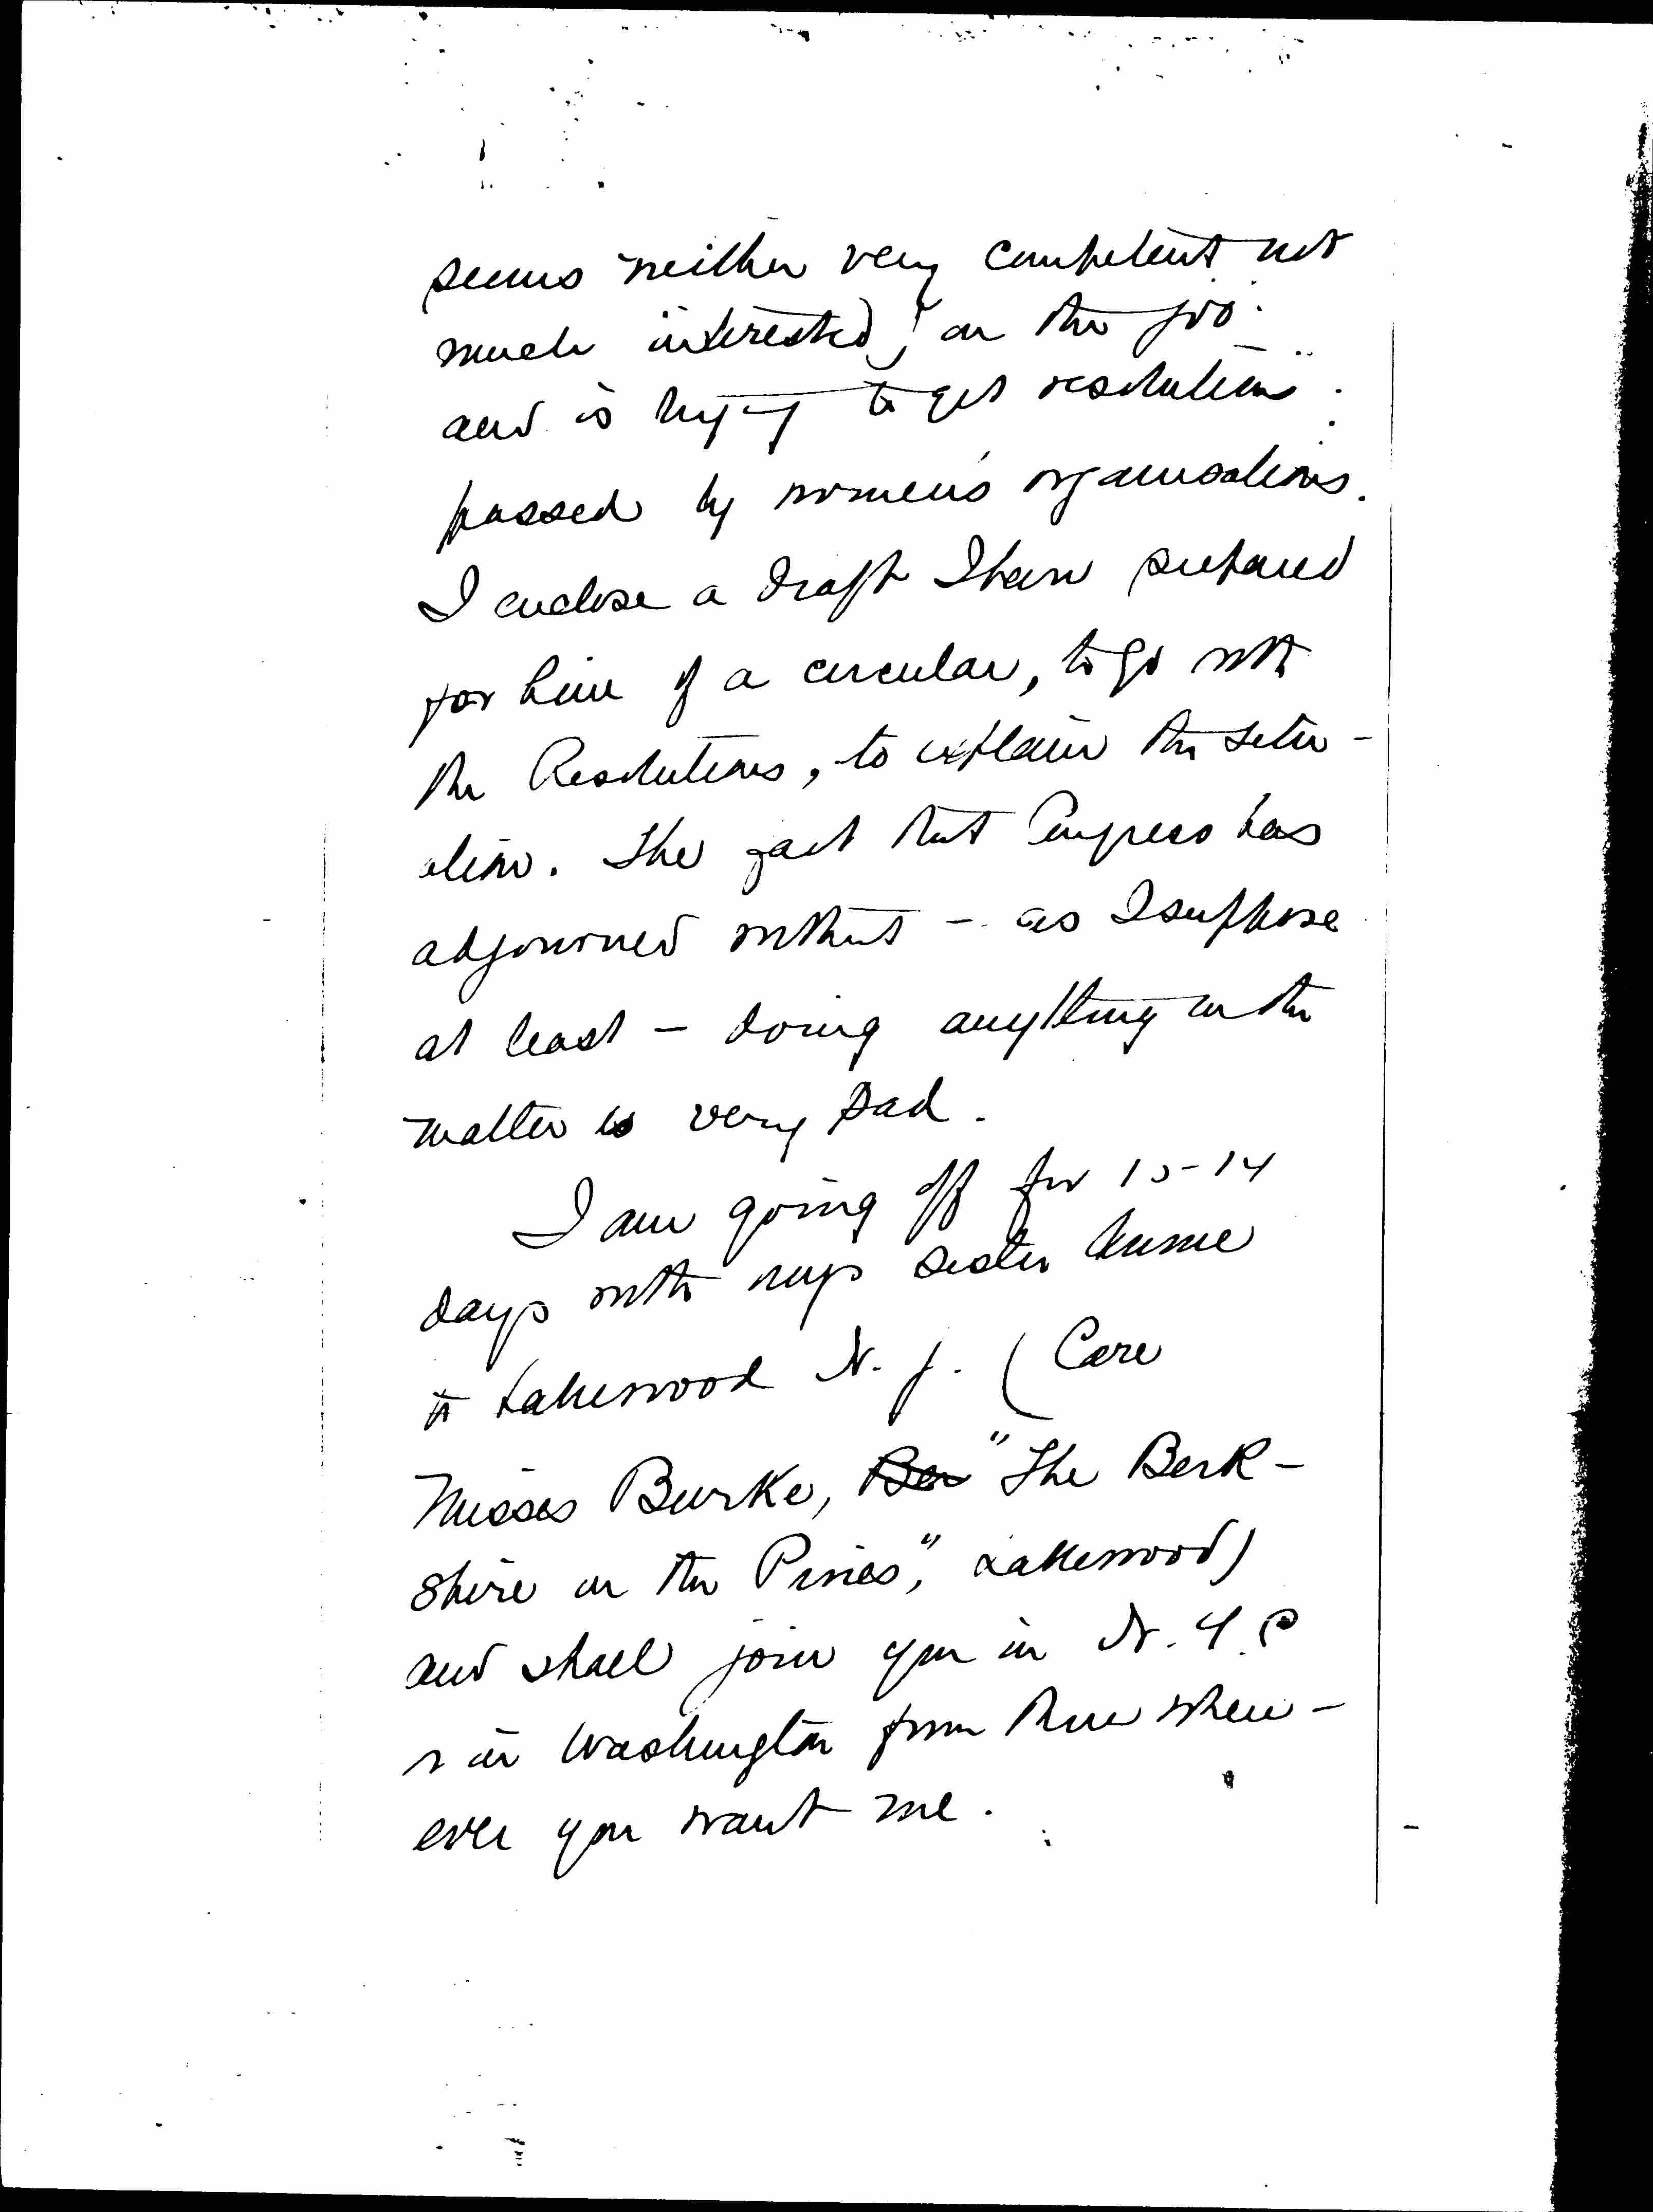 seems neither very competent not
much interested, on the job.
and is trying to get resolutions
passed by women's organisations.
I enclose a draft I have prepared
for him of a circular, to go with
the Resolutions, to explain the situ-
ation. The fact that Congress has
adjourned without - as I suppose
at least - doing anything in the
matter is very sad.
I am going off for 10-14
days with my sister
to Lakewood N. J. (Care
Misses Burke, Ber "The Berk-
shire in the Pines", Lakewood)
and shall join you in N. Y. C
or in Washington from there when-
ever you want me.